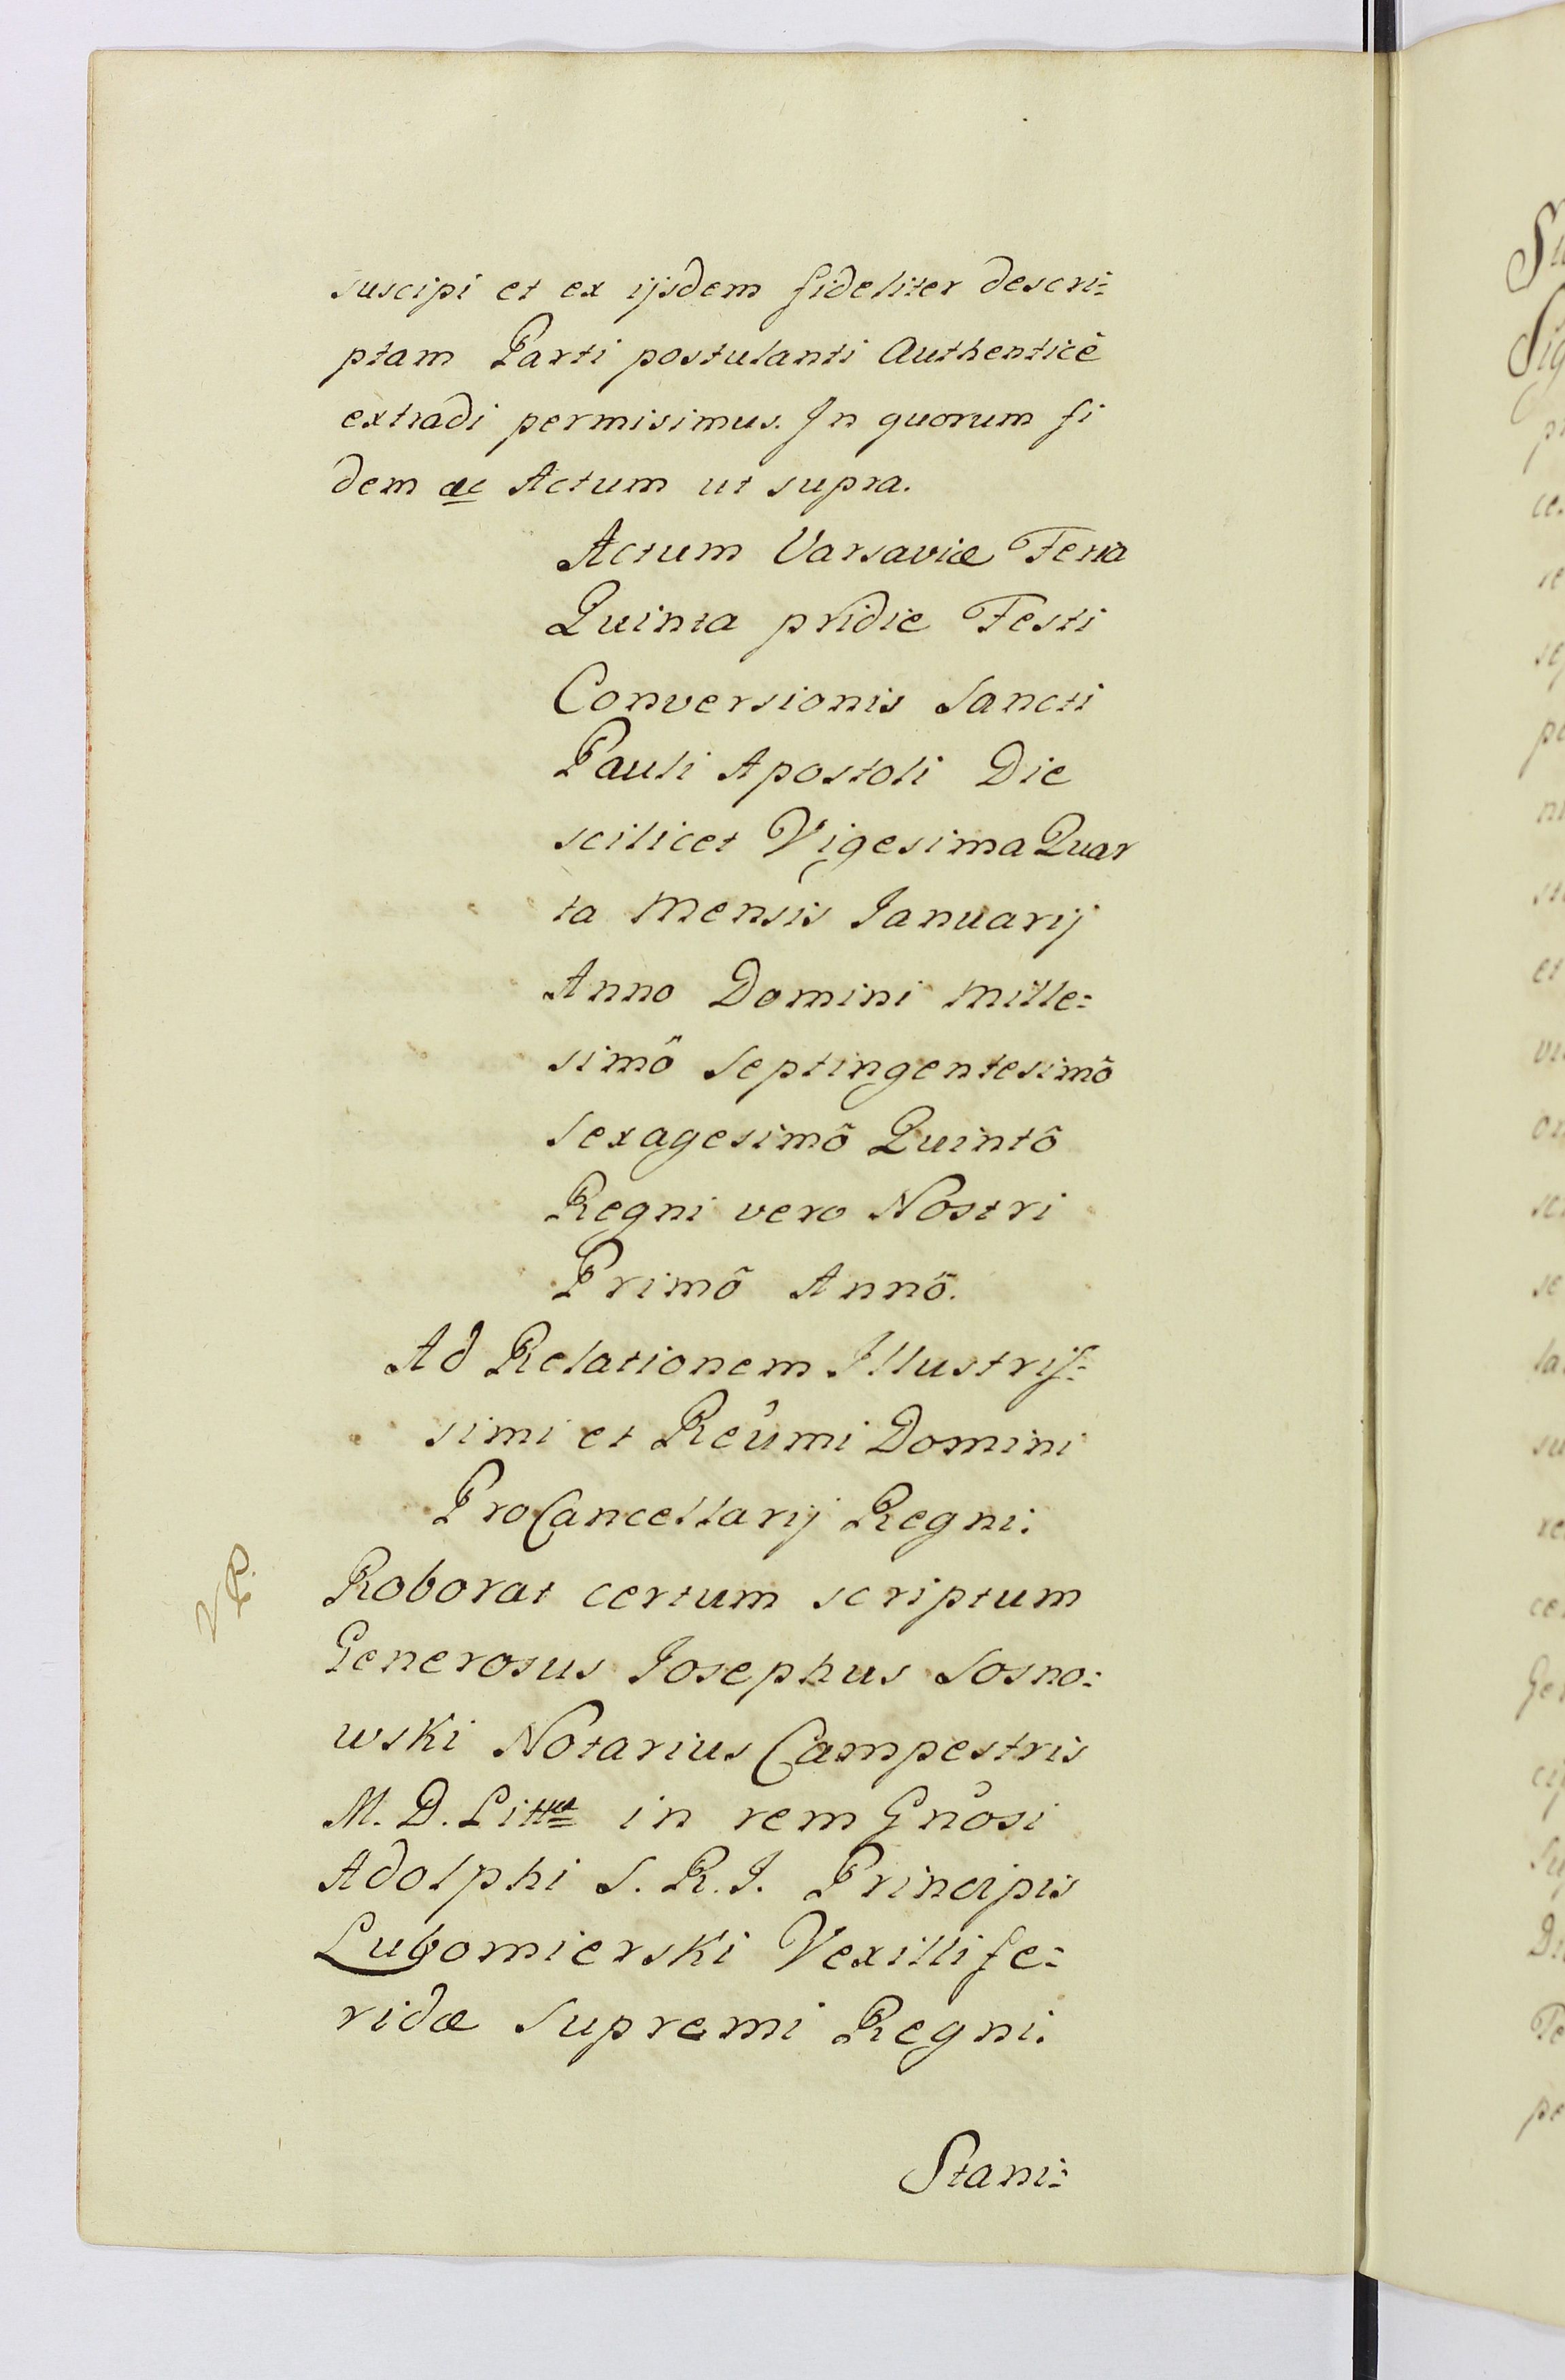 suscipi et ex ijsdem fideliter descri=
ptam Parti postulanti Authenticè
extradi permisimus. In quorum fi
dem &c Actum ut supra.
Actum Varsaviæ Feria
Quinta pridie Festi
Conversionis Sancti
Pauli Apostoli Die
scilicet Vigesima Quar
ta Mensis Januarij
Anno Domini Mille=
simô Septingentesimô
Sexagesimô Quintô
Regni vero Nostri
Primô Annô.
Ad Relationem Illustris=
simi et Reumi Domini
ProCancellarij Regni.
VP.
Roborat certum scriptum
Generosus Josephus Sosno=
wski Notarius Campestris
M. D. Littæ in rem Gnosi
Adolphi S. R. I. Principis
Lubomierski Vexillife=
ridæ Supremi Regni.
Stani=